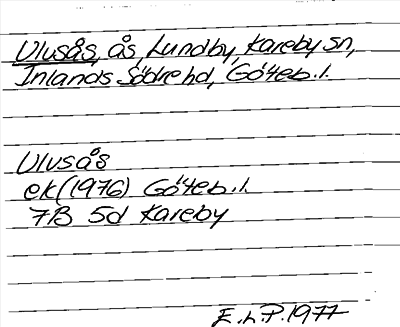 Ulusås, ås, Lundby, Kareby sn,
Inlands Södre hd, Göteb. l.
Ulvsås
ek (1976) Göteb. l.
7B 5d Kareby
E.L.P. 1977